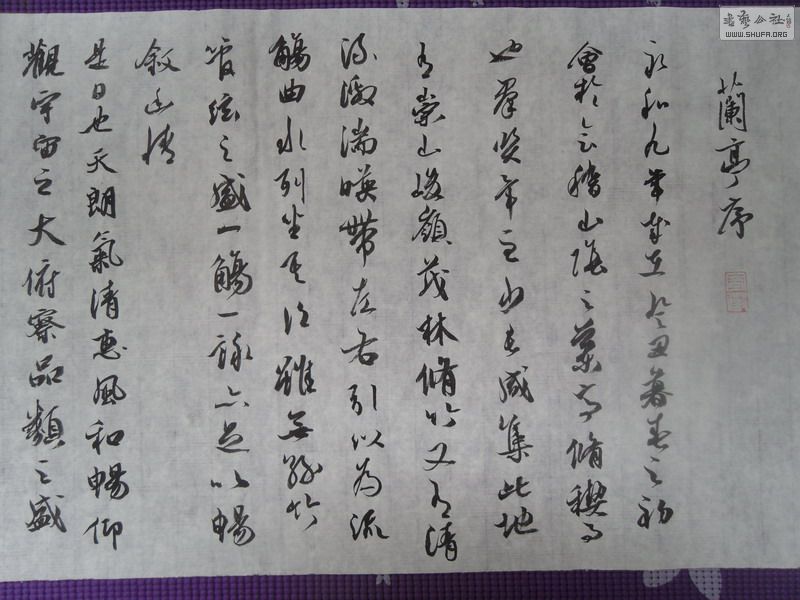 蘭亭序
永和九年歲在癸丑暮春之初
會於會稽山陰之蘭亭脩稧事
也群賢畢至少長咸集此地
有崇山峻嶺茂林脩竹又有清
流激湍暎帶左右引以為流
觴曲水列坐其次雖無絲竹
管絃之盛一觴一詠亦足以暢
敘幽情
是日也天朗氣清惠風和暢仰
觀宇宙之大俯察品類之盛
書藝公社
WWW.SHUFA.ORG